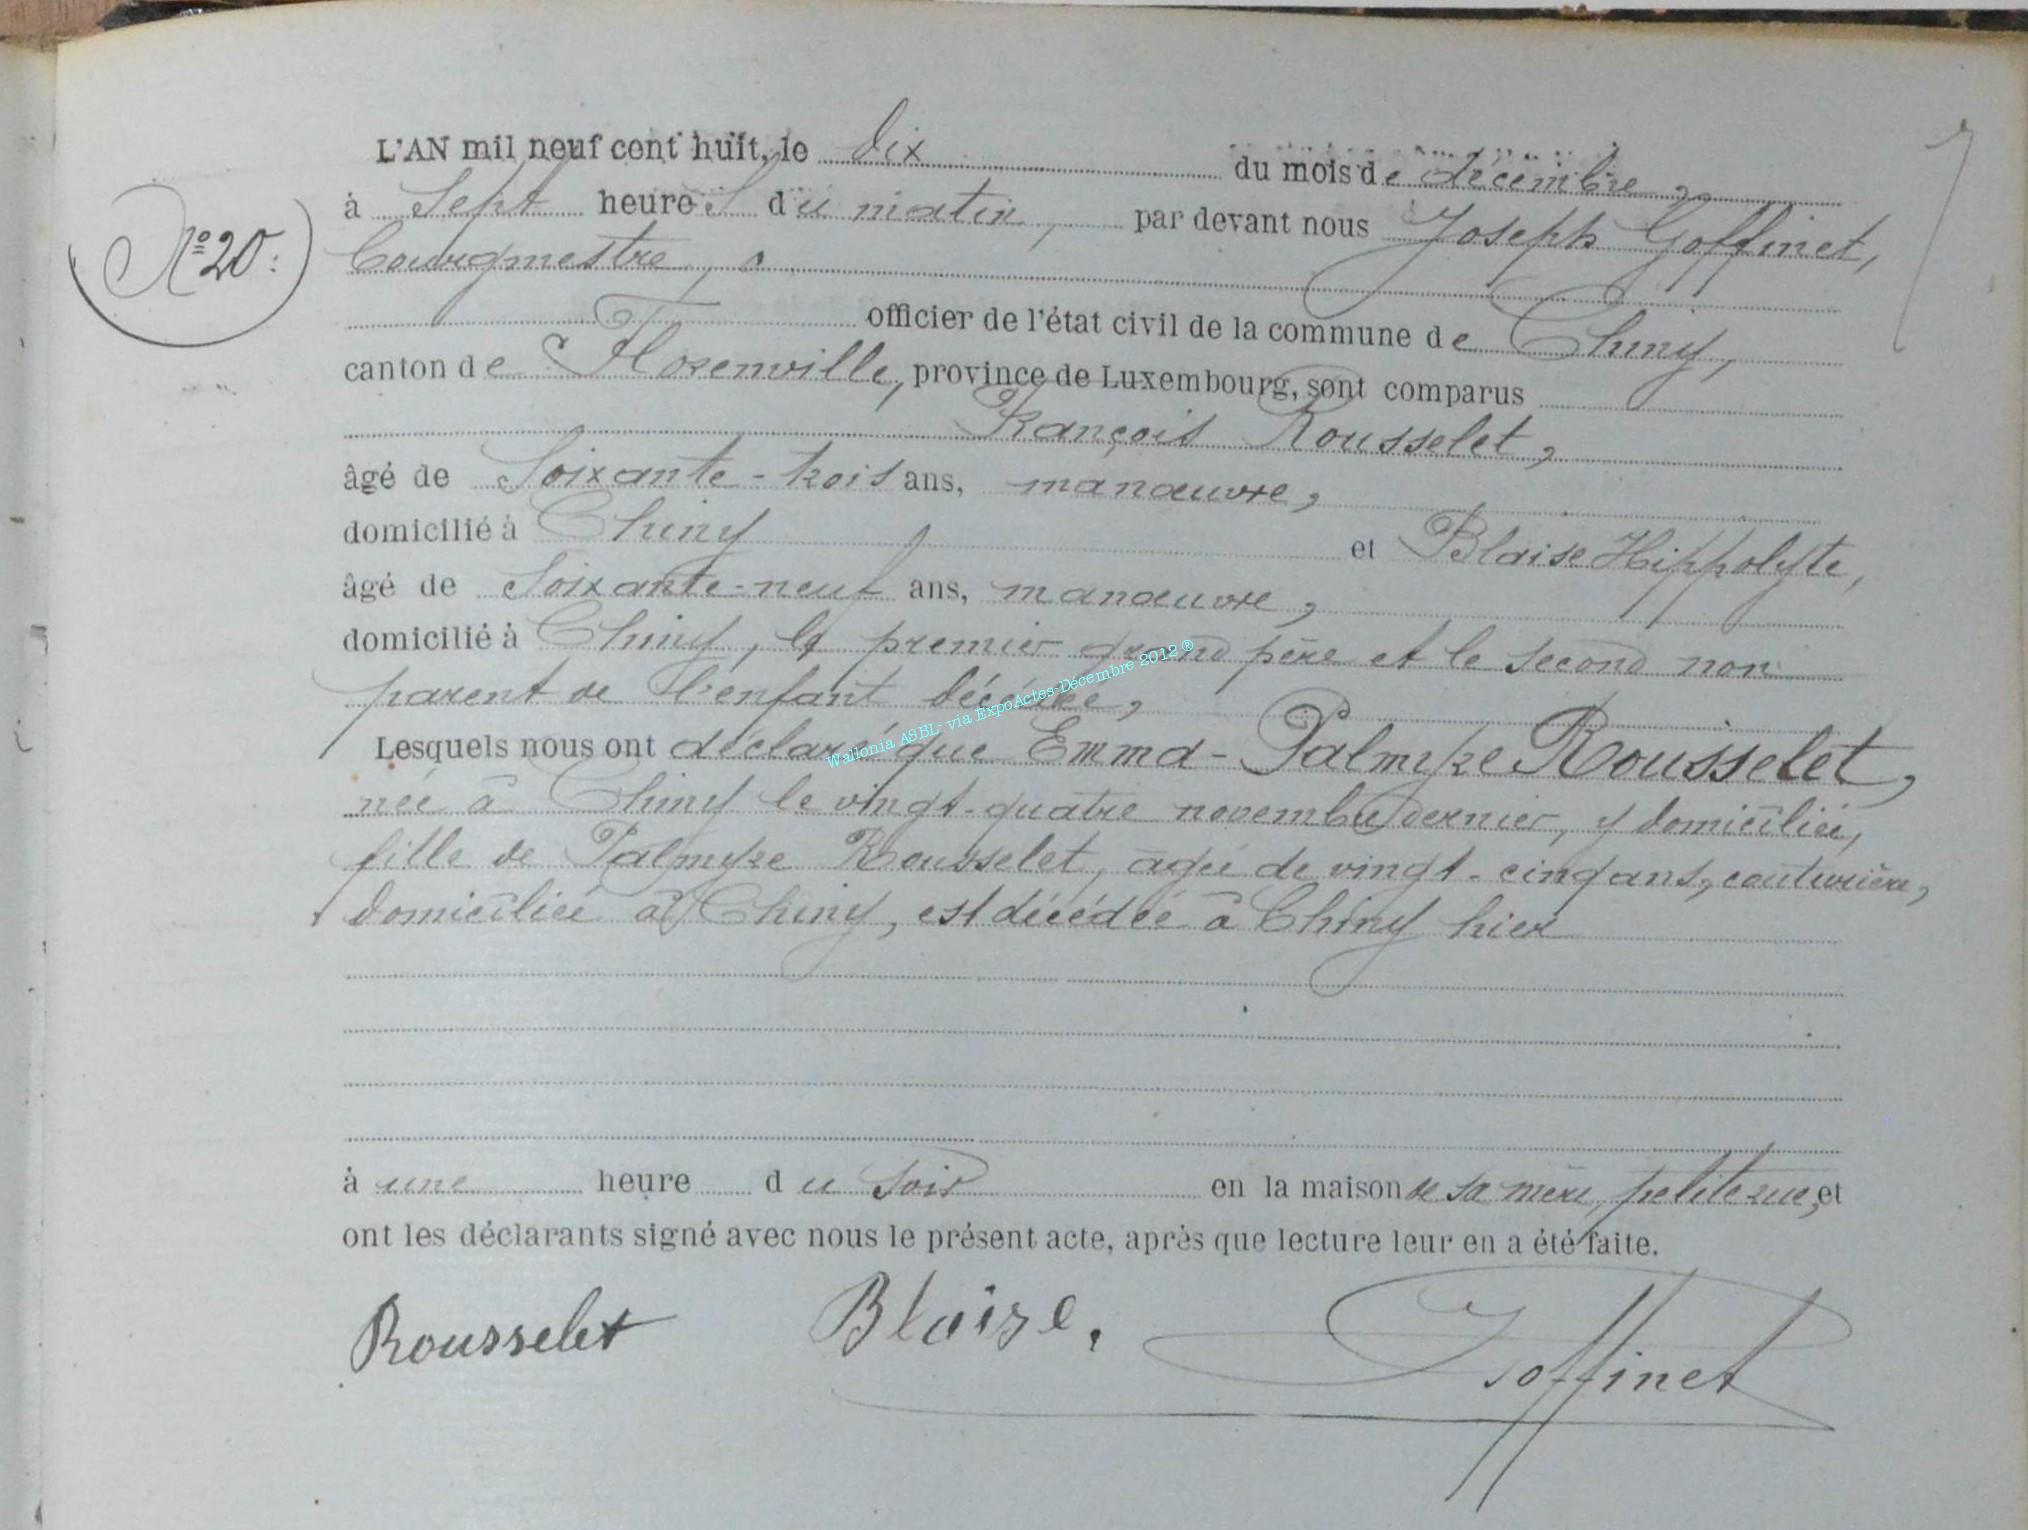 L'AN mil neuf cent huit, le dix du mois de décembre,
à sept heures du matin, par devant nous Joseph Goffinet,
N° 20:
bourgmestre,
officier de l'état civil de la commune de Chiny,
canton de Florenville, province de Luxembourg, sont comparus
François Rousselet,
âgé de soixante-trois ans, manœuvre,
domicilié à Chiny et Blaise Hippolyte,
âgé de soixante-neuf ans, manœuvre,
domicilié à Chiny, le premier grand père et le second non
parent de l'enfant décédée,
Wallonia ASBL- via ExpoActes-Décembre 2012 ®
Lesquels nous ont déclaré que Emma-Palmyre Rousselet,
née à Chiny le vingt-quatre novembre dernier, y domiciliée,
fille de Palmyre Rousselet, âgée de vingt-cinq ans, couturière,
domiciliée à Chiny, est décédée à Chiny hier
à une heure du soir en la maison de sa mère, petite rue, et
ont les déclarants signé avec nous le présent acte, après que lecture leur en a été faite.
Rousselet Blaise. Goffinet